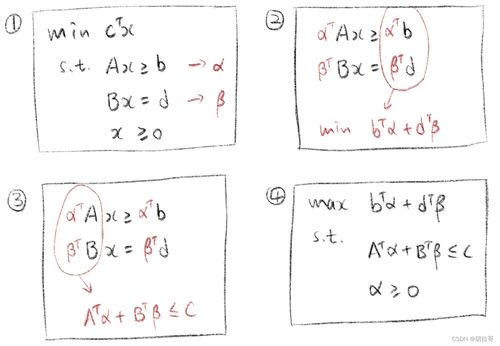 ①
min cᵀx
s.t. Ax ≥ b → α
Bx = d → β
x ≥ 0
②
αᵀAx ≥ αᵀb
βᵀBx = βᵀd
min bᵀα + dᵀβ
③
αᵀAx ≥ αᵀb
βᵀBx = βᵀd
Aᵀα + Bᵀβ ≤ C
④
max bᵀα + dᵀβ
s.t.
Aᵀα + Bᵀβ ≤ C
α ≥ 0
CSDN @胡拉哥